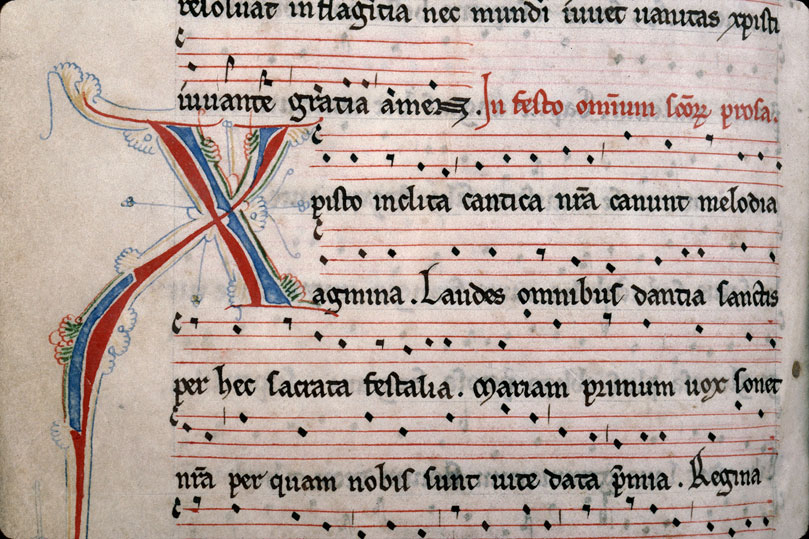 resoluat in flagitia nec mundi iuuet uanitas xpisti
iuuante gr̄atia amen. In festo om̄ium sc̄oꝝ prosa.
Xpisto inclita cantica nr̄a canunt melodia
agmina. Laudes omnibus dantia sanctis
per hec sacrata festalia. Mariam primum uox sonet
nr̄a per quam nobis sunt uite data p̄mia. Regina